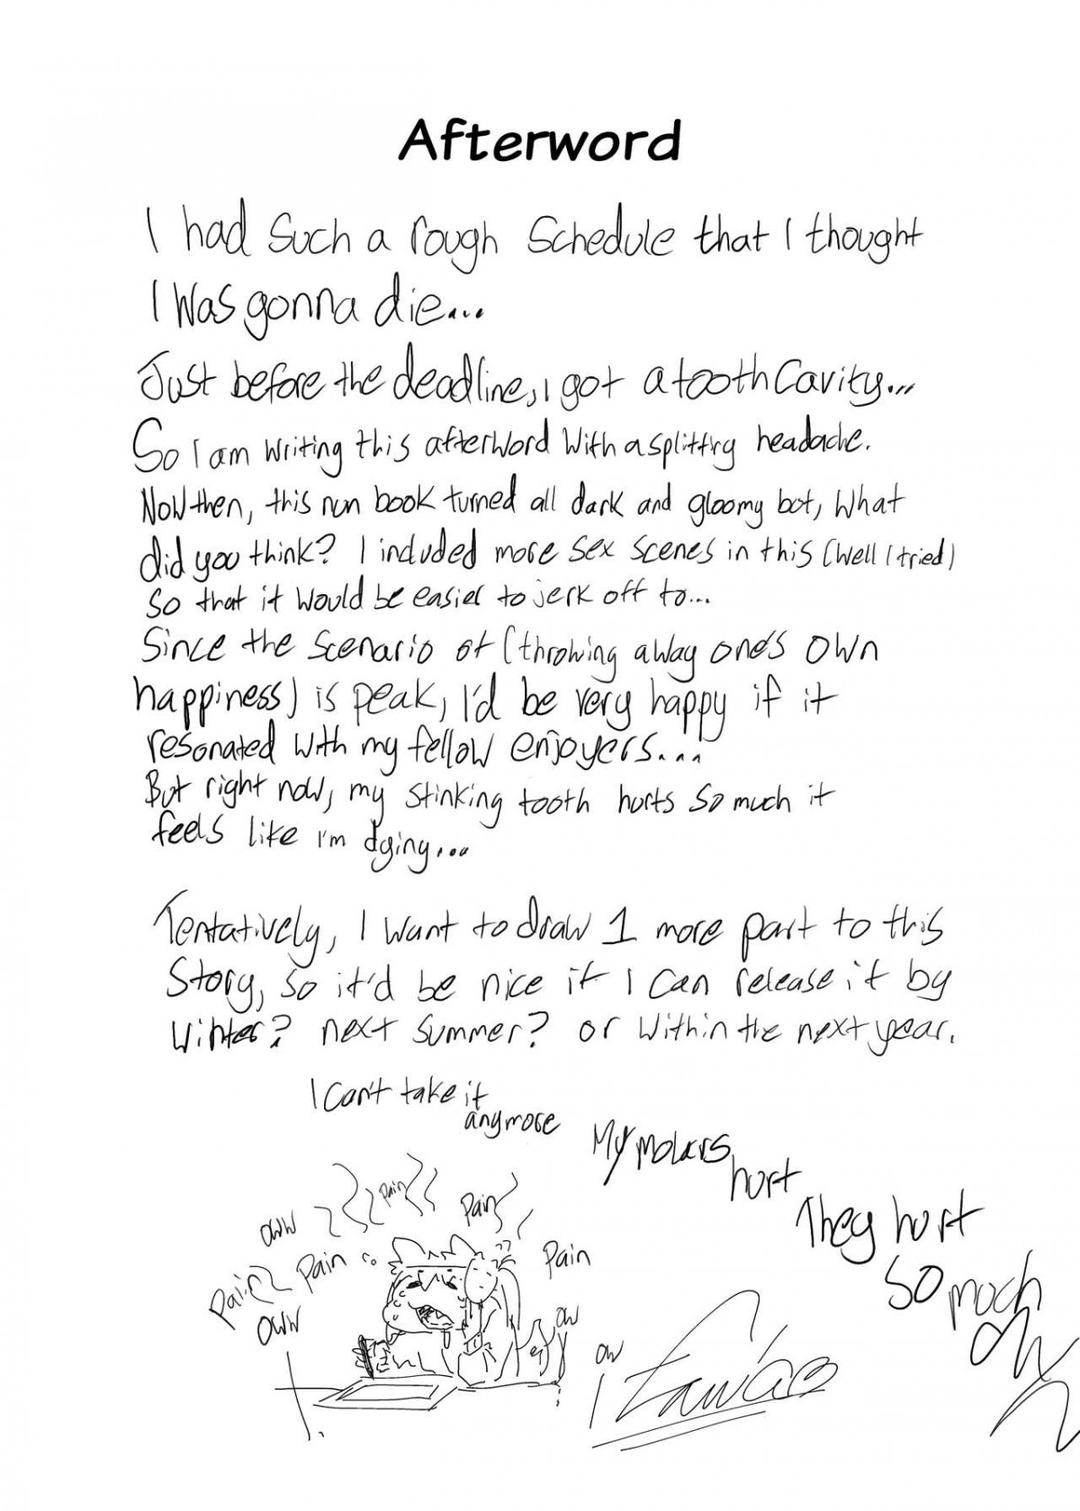 Afterword
I had such a rough schedule that I thought
I was gonna die...
Just before the deadline, I got a tooth cavity...
So I am writing this afterword with a splitting headache.
Now then, this nun book turned all dark and gloomy but, what
did you think? I included more sex scenes in this (well I tried)
so that it would be easier to jerk off to...
Since the scenario of (throwing away one's own
happiness) is peak, I'd be very happy if it
resonated with my fellow enjoyers...
But right now, my stinking tooth hurts so much it
feels like I'm dying...
Tentatively, I want to draw 1 more part to this
story, so it'd be nice if I can release it by
Winter? next summer? or within the next year.
I can't take it
anymore
My molars
hurt
They hurt
so much
ow
Pain
Pain
oww
Pain
Pain
Pain
oww
ow
ow